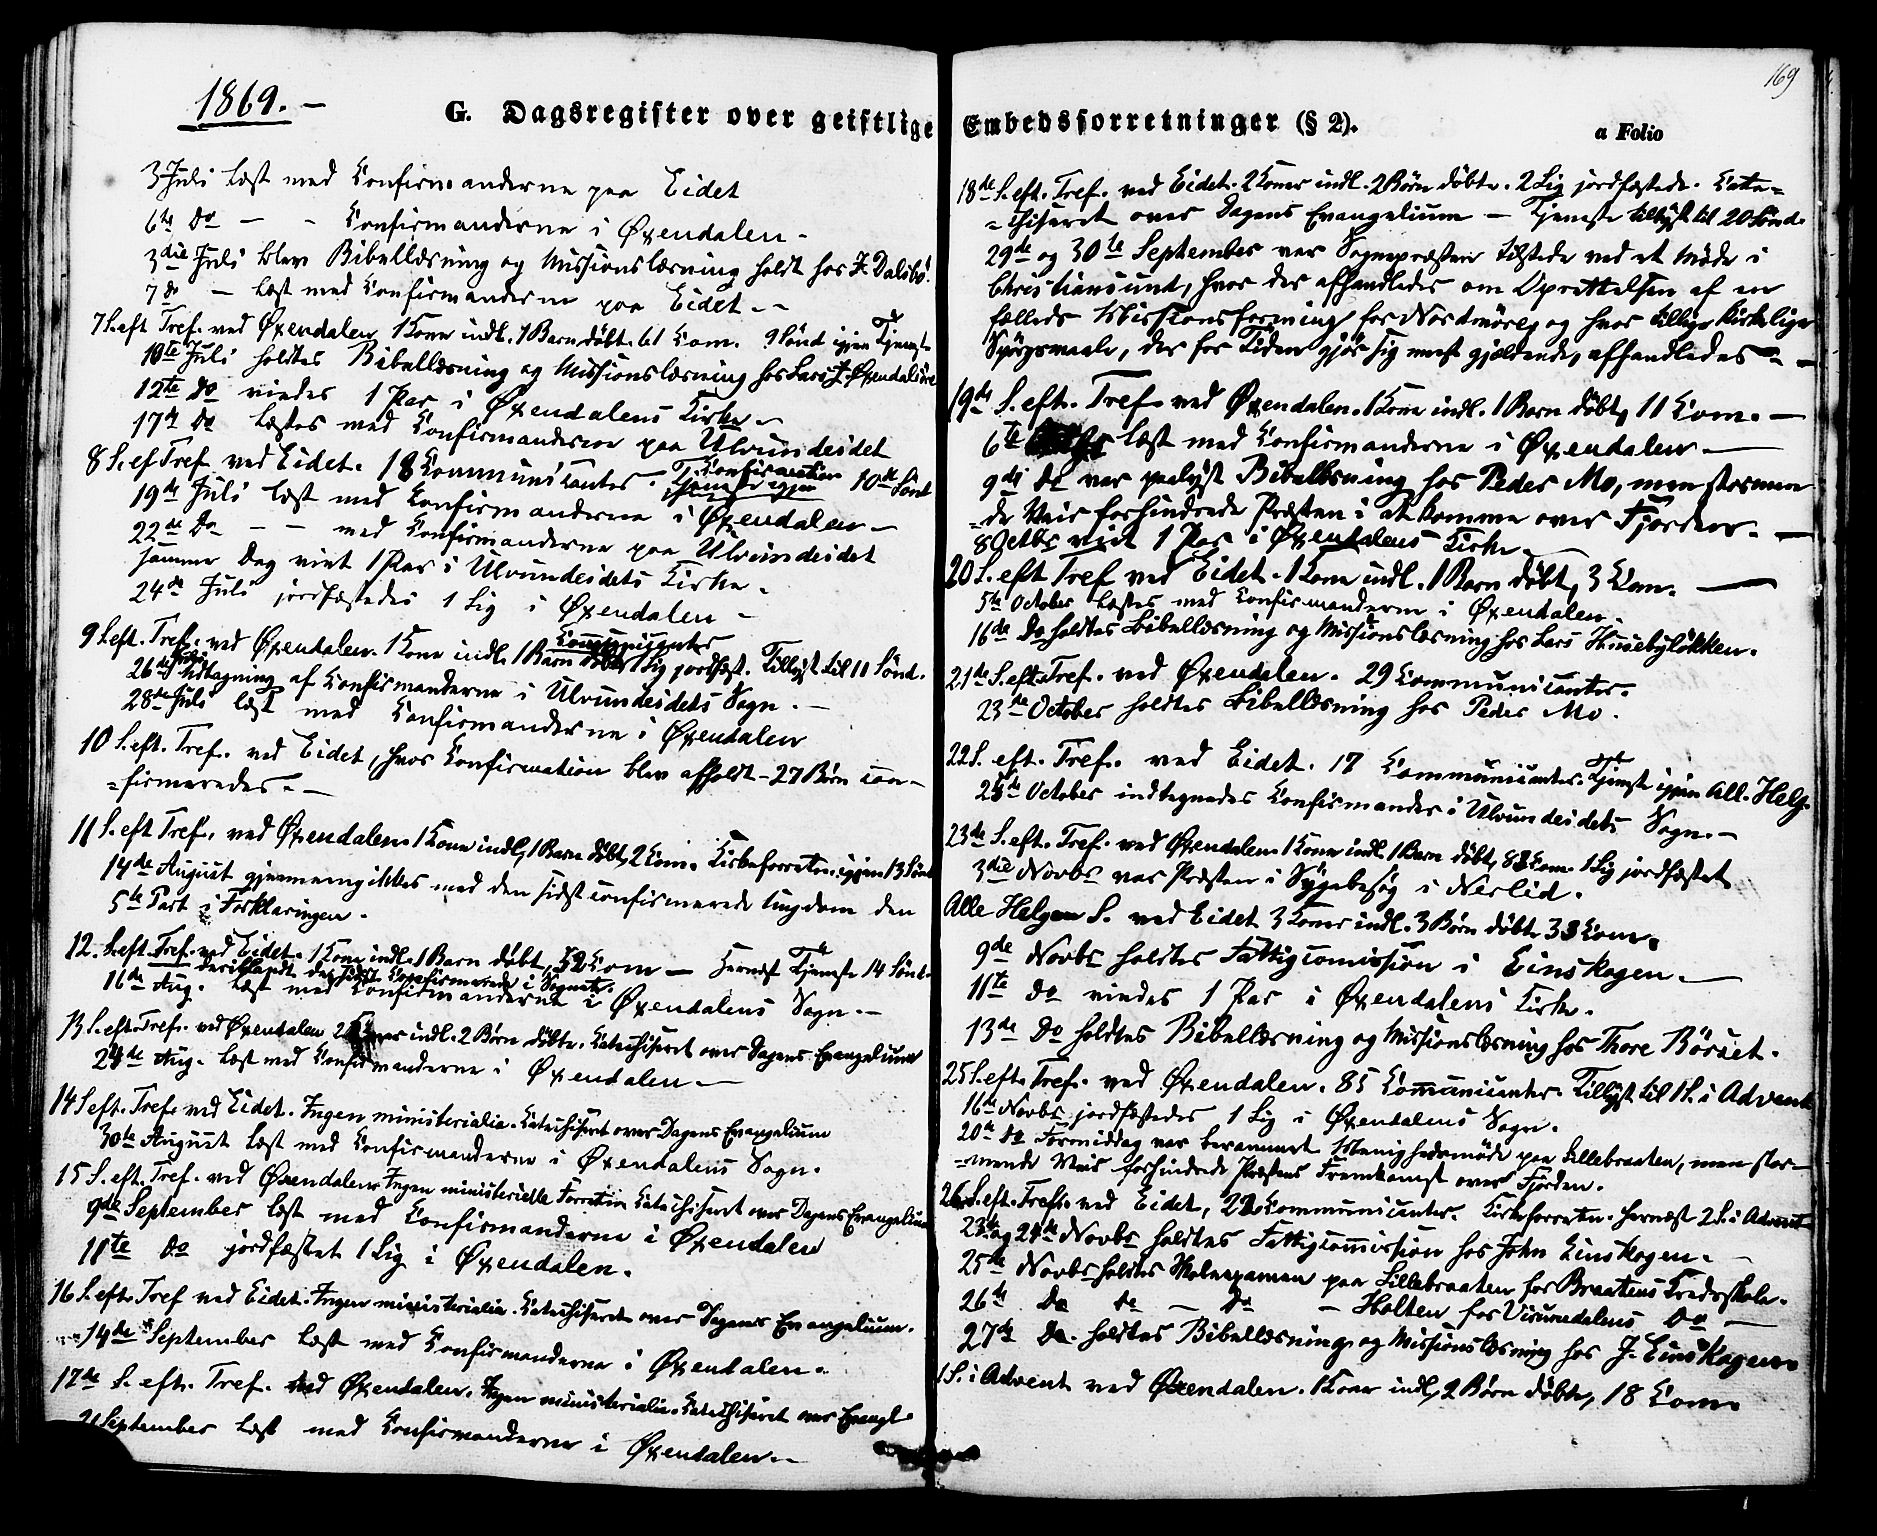 1869. –
G. Dagsregister over geistlige
3 Juli læst med Confirmanderne paa Eidet
6te Do – – Confirmanderne i Øxendalen –
3die Juli blev Bibellæsning og Missionslæsning holdt hos J. Dalsbø.
7 de – læst med Confirmanderne paa Eidet. –
7 S. eft Tref. ved Øxendalen 1 Kone indl. 1 Barn døbt. 61 Com. 9 Sønd igjen Tjeneste
10te Juli holdtes Bibellæsning og Missionslæsning hos Lars J. Øxendalsøre
12te Do viedes 1 Par i Øxendalens Kirke –
17de Do læstes med Confirmanderne paa Ulvundeidet
8 S. ef Tref ved Eidet. 18 Communicantes. Tjeneste igjen Confirmation 10de Sønd
19de Juli læst med Confirmanderne i Øxendalen –
22de Do – – med Confirmanderne paa Ulvundeidet
samme Dag viet 1 Par i Ulvundeidets Kirke.
24de Juli jordfæstedes 1 Lig i Øxendalen –
9 S. eft. Tref. ved Øxendalen. 1 Kone indl. 1 Barn døbt 1 Lig jordfæst. Tillyst til 11 Sønd.
26de Juli Udtagning af Confirmanderne i Ulvundeidets Sogn. –
28de Juli læst med Confirmanderne i Øxendalen
10 S. eft. Tref. ved Eidet, hvor Confirmation blev afholdt – 27 Børn con-
=firmeredes. –
11 S. eft Tref. ved Øxendalen 1 Kone indl, 1 Barn døbt, 2 Com. Kirkeforretn. igjen 13 Sønd
14de August gjennemgikkes med den sidst confirmerede Ungdom den
5te Part i Forklaringen.
12. S. eft. Tref. ved Eidet. 1 Kone indl. 1 Barn døbt, 52 Com – hernæst Tjeneste 14 Sønd.
deriblandt de sidst Confirmerede i Sognet.
16de Aug. læst med Confirmanderne i Øxendalens Sogn. –
13 S. eft. Tref. ved Øxendalen 2 Koner indl. 2 Børn døbte. Catechiseret over Dagens Evangelium
24de Aug. læst med Confirmanderne i Øxendalen –
14 S eft. Tref. ved Eidet. Ingen ministerialia. Catechiseret over Dagens Evangelium
30te August læst med Confirmanderne i Øxendalens Sogn.
15 S. eft. Tref. ved Øxendalen Ingen ministerielle Forretn Catechiseret over Dagens Evangelium
9de September læst med Confirmanderne i Øxendalen
11te do jordfæstet 1 Lig i Øxendalen.
16 S. eft. Tref ved Eidet. Ingen ministerialia. Catechiseret over Dagens Evangelium.
14de September læst med Confirmanderne i Øxendalen.
17de S. eft. Tref. ved Øxendalen. Ingen ministerialia. Catechiseret over Evangl.
21 September læst med Confirmanderne i Øxendalen. –
169
Embedsforretninger (§ 2).
a Folio
18de S. eft. Tref. ved Eidet. 2 Koner indl. 2 Børn døbte. 2 Lig jordfæstede. Cate=
=chiseret over Dagens Evangelium – Tjeneste tillyst til 20 Sønd.
29de og 30te September var Sognepræsten tilstede ved et Møde i
Christiansund, hvor der afhandledes om Oprettelsen af en
fælleds Missionsforening for Nordmøre, og hvor tillige kirkelige
Spørgsmaale, der for Tiden gjør sig mest gjældende, afhandledes –
19de S. eft. Tref. ved Øxendalen. 1 Kone indl. 1 Barn døbt, 11 Com. –
6te læst med Confirmanderne i Øxendalen –
9de do var paalyst Bibellæsning hos Peder Mo, men stormen=
=de Veir forhindrede Præsten i at komme over Fjorden. –
8 Octbr viet 1 Par i Øxendalens Kirke –
20 S. eft Tref ved Eidet. 1 Kone indl. 1 Barn døbt, 3 Com. –
5te October læstes med Confirmanderne i Øxendalen.
16de Do holdtes Bibellæsning og Missionslæsning hos Lars Husebyløkken.
21de S. eft. Tref. ved Øxendalen. 29 Communicanter.
23de October holdtes Bibellæsning hos Peder Mo.
22 S. eft. Tref. ved Eidet. 17 Communicanter. Tjeneste igjen All. Helg.
25de October indtegnedes Confirmander i Ulvundeidets Sogn. –
23de S. eft. Tref. ved Øxendalen 1 Kone indl. 1 Barn døbt, 83 Com. 1 Lig jordfæstet
3die Novbr var Præsten i Sygebesøg i Nerlid.
Alle Helgen S. ved Eidet 3 Koner indl. 3 Børn døbt 33 Com.
9de Novbr holdtes Fattigcomission i Einskogen. –
11te do viedes 1 Par i Øxendalens Kirke.
13de Do holdtes Bibellæsning og Missionslæsning hos Thore Børset.
25 S. eft. Tref. ved Øxendalen. 85 Comunicanter. Tillyst til 1 S. i Advent
16de Novbr jordfæstedes 1 Lig i Øxendalens Sogn.
20de do Formiddag var berammet Menighedsmøde paa Lillebraaten, men stor=
=mende Veir forhindrede Præstens Fremkomst over Fjorden.
26 S. eft. Tref. ved Eidet, 22 Communicanter. Kirkeforretn. hernæst 2 S. i Advent
23de og 24de Novbr holdtes Fattigcomission hos John Einskogen. –
25de Novbr holdtes Skoleexamen paa Lillebraaten for Braatens Kredsskole.
26de Do do – Do – Holten for Virumdalens Do –
27de Do. holdtes Bibellæsning og Missionslæsning hos J. Einskogen.
1 S. i Advent ved Øxendalen. 1 Kone indl, 2 Børn døbte, 18 Com.